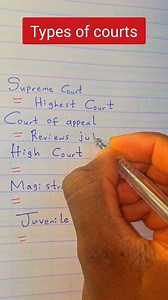 Types of courts
Supreme Court
= Highest Court
Court of appeal
= Reviews
High Court
=
=
Juvenile
=